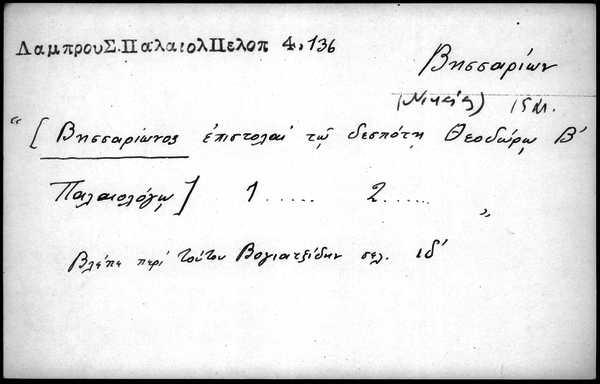 Λαμπρου Σ. Παλαιολ Πελοπ 4,136
Βησσαρίων
(Νικαίας) 15 αι.
“[Βησσαρίωνος ἐπιστολαὶ τῷ δεσπότῃ Θεοδώρῳ Β′
Παλαιολόγῳ] 1...... 2...... „
Βλέπε περὶ τούτου Βογιατζίδην σελ. ιδ′